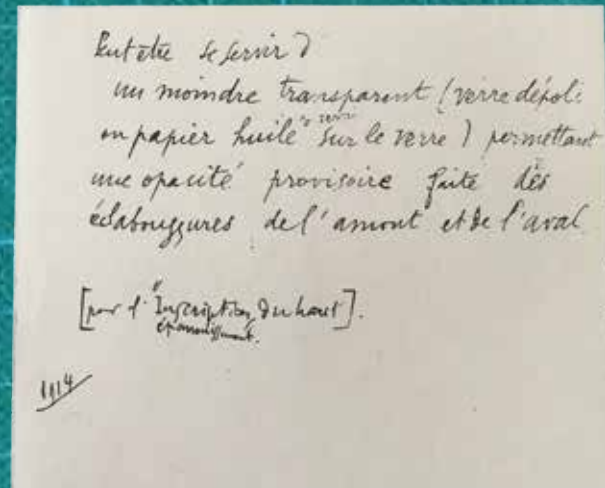 Peut être se servir d
un moindre transparent (verre dépoli
ou papier huilé sur le verre) permettant
une opacité provisoire faite des
éclaboussures de l'amont et de l'aval
[pour l' "Inscription du haut].
épanouissement.
1914